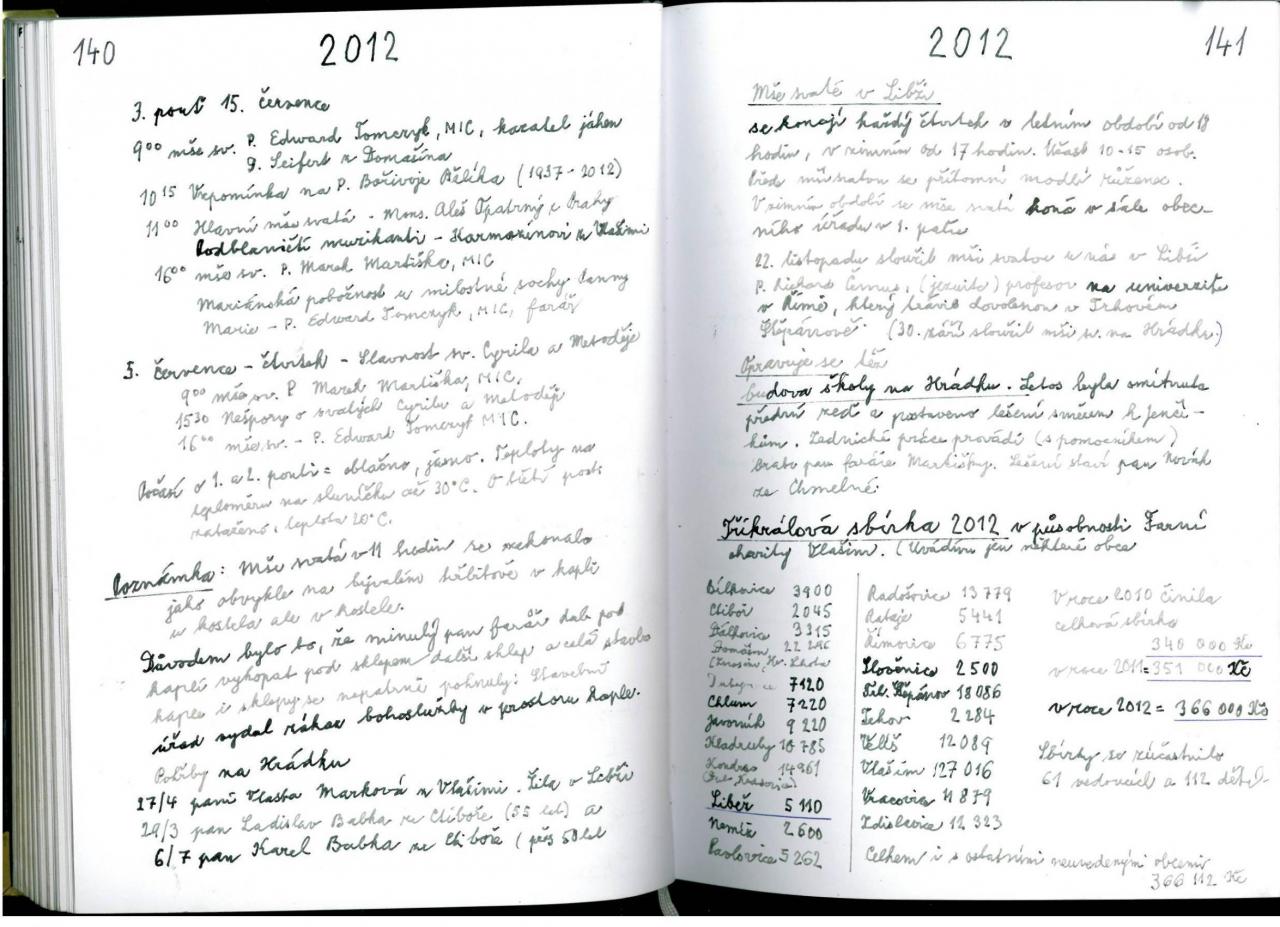 140 2012
3. pouť 15. července
9⁰⁰ mše sv. P. Edward Tomczyk, MIC, kazatel jáhen
P. Seifert z Domašína
10 15 Vzpomínka na P. Bořivoje Bělíka (1937 - 2012)
11⁰⁰ Hlavní mše svatá - Mons. Aleš Opatrný z Prahy
Podblaničtí muzikanti - Karmazínovi z Vlašimi
16⁰⁰ mše sv. P. Marek Martiška, MIC
Mariánská pobožnost u milostné sochy Panny
Marie - P. Edward Tomczyk, MIC, farář
5. července - čtvrtek - Slavnost sv. Cyrila a Metoděje
9⁰⁰ mše sv. P Marek Martiška, MIC,
1530 Nešpory o svatých Cyrilu a Metoději
16⁰⁰ mše sv. - P. Edward Tomczyk MIC.
Počasí o 1. a 2. pouti = oblačno, jasno. Teploty na
teploměru na sluníčku až 30°C. O třetí pouti
zataženo, teplota 20°C.
Poznámka: Mše svatá v 11 hodin se nekonala
jako obvykle na bývalém hřbitově v kapli
u kostela ale v kostele.
Důvodem bylo to, že minulý pan farář dal pod
kaplí vykopat pod sklepem další sklep a celá stavba
kaple i sklepy se nepatrně pohnuly. Stavební
úřad vydal zákaz bohoslužby v prostoru kaple.
Pohřby na Hrádku
27/4 paní Vlasta Marková z Vlašimi. Žila v Libži
29/3 pan Ladislav Babka ze Ctiboře (55 let) a
6/7 pan Karel Babka ze Ctiboře (přes 50 let
2012 141
Mše svaté v Libži
se konají každý čtvrtek v letním období od 18
hodin, v zimním od 17 hodin. Účast 10-15 osob.
Před mší svatou se přítomní modlí růženec.
V zimním období se mše svatá koná v sále obec-
ního úřadu v 1. patře
22. listopadu sloužil mši svatou u nás v Libži
P. Richard Čemus, (jezuita) profesor na univerzitě
v Římě, který trávil dovolenou v Trhovém
Štěpánově. (30. září sloužil mši sv. na Hrádku)
Opravuje se též
budova školy na Hrádku. Letos byla omítnuta
přední zeď a postaveno lešení směrem k Jenčí-
kům. Zednické práce provádí (s pomocníkem)
bratr pan faráře Martišky. Lešení staví pan Novák
ze Chmelné.
Tříkrálová sbírka 2012 v působnosti Farní
charity Vlašim. (Uvádím jen některé obce
Bílkovice 3900
Ctiboř 2045
Dálkovice 3315
Domašín 22 246
7120
Chlum 7220
Javorník 9 220
Kladruby 10 785
Kondrac 14961
Libež 5 110
Nemíž 2 600
Pavlovice 5 262
Radošovice 13 779
Rataje 5441
Římovice 6775
Slověnice 2 500
Trh. Štěpánov 18 086
Tehov 2 284
Veliš 12 089
Vlašim 127 016
Vracovice 11 879
Zdislavice 12 323
V roce 2010 činila
celková sbírka
340 000 Kč
v roce 2011 = 351 000 Kč
v roce 2012 = 366 000 Kč
Sbírky se zúčastnilo
61 vedoucích a 112 dětí.
Celkem i s ostatními neuvedenými obcemi
366 112 Kč